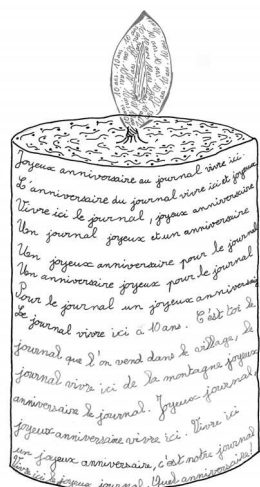 Joyeux anniversaire au journal vivre ici.
L'anniversaire du journal vivre ici et joyeux
Vivre ici le journal, joyeux anniversaire
Un journal joyeux et un anniversaire
Un joyeux anniversaire pour le journal
Un anniversaire joyeux pour le journal
Pour le journal un joyeux anniversaire
Le journal vivre ici à 10 ans. C'est toi le
journal que l'on vend dans le village, le
journal vivre ici de la montagne joyeux
anniversaire le journal. Joyeux journal,
joyeux anniversaire vivre ici. Vivre ici
un joyeux anniversaire, c'est notre journal
Vivre ici le joyeux journal. Quel anniversaire!